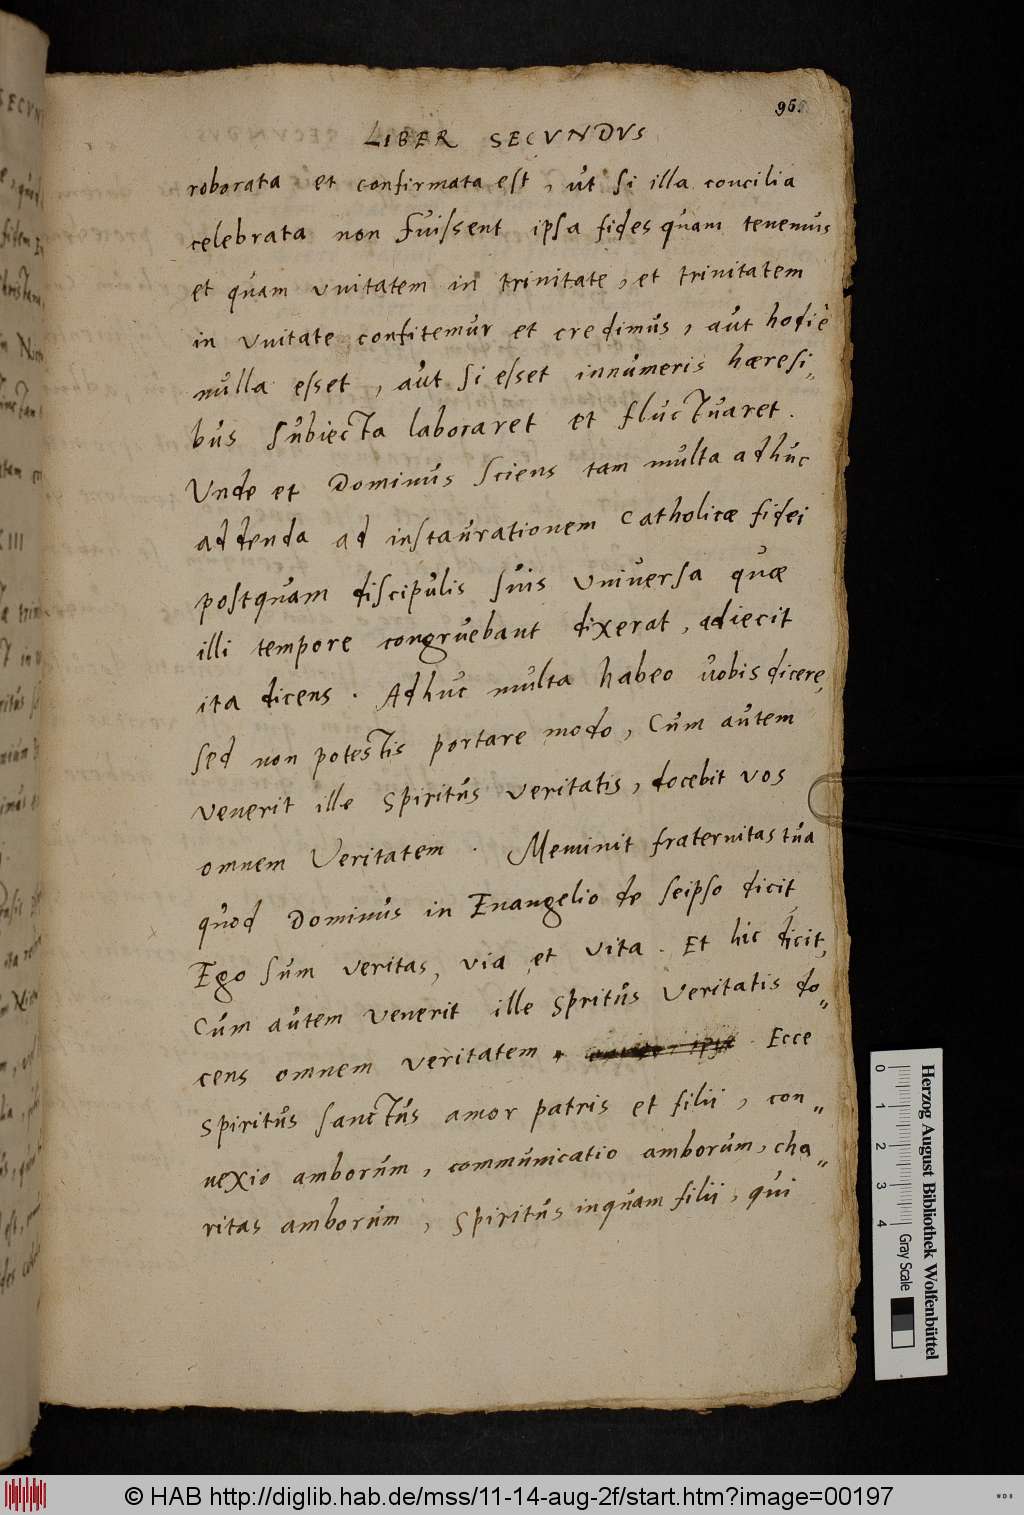 96.
LIBER SECVNDVS
roborata et confirmata est, ut si illa concilia
celebrata non fuissent ipsa fides quam tenemus
et quam vnitatem in trinitate, et trinitatem
in vnitate confitemur et credimus, aut hodiè
nulla esset, aut si esset innumeris hæresi„
bus subiecta laboraret et fluctuaret.
Vnde et Dominus sciens tam multa adhuc
addenda ad instaurationem Catholicæ fidei
postquam discipulis suis vniuersa quæ
illi tempore congruebant dixerat, adiecit
ita dicens. Adhuc multa habeo uobis dicere,
sed non potestis portare modo, Cum autem
venerit ille spiritus veritatis, docebit vos
omnem Veritatem. Meminit fraternitas tua
quod Dominus in Euangelio de seipso dicit
Ego sum veritas, via et vita. Et hic dicit,
Cum autem venerit ille Spritus Veritatis do„
cens omnem veritatem. Ecce
spiritus sanctus amor patris et filii, con„
nexio amborum, communicatio amborum, cha„
ritas amborum, spiritus inquam filii, qui
Herzog August Bibliothek Wolfenbüttel
0 1 2 3 4 Gray Scale
© HAB http://diglib.hab.de/mss/11-14-aug-2f/start.htm?image=00197